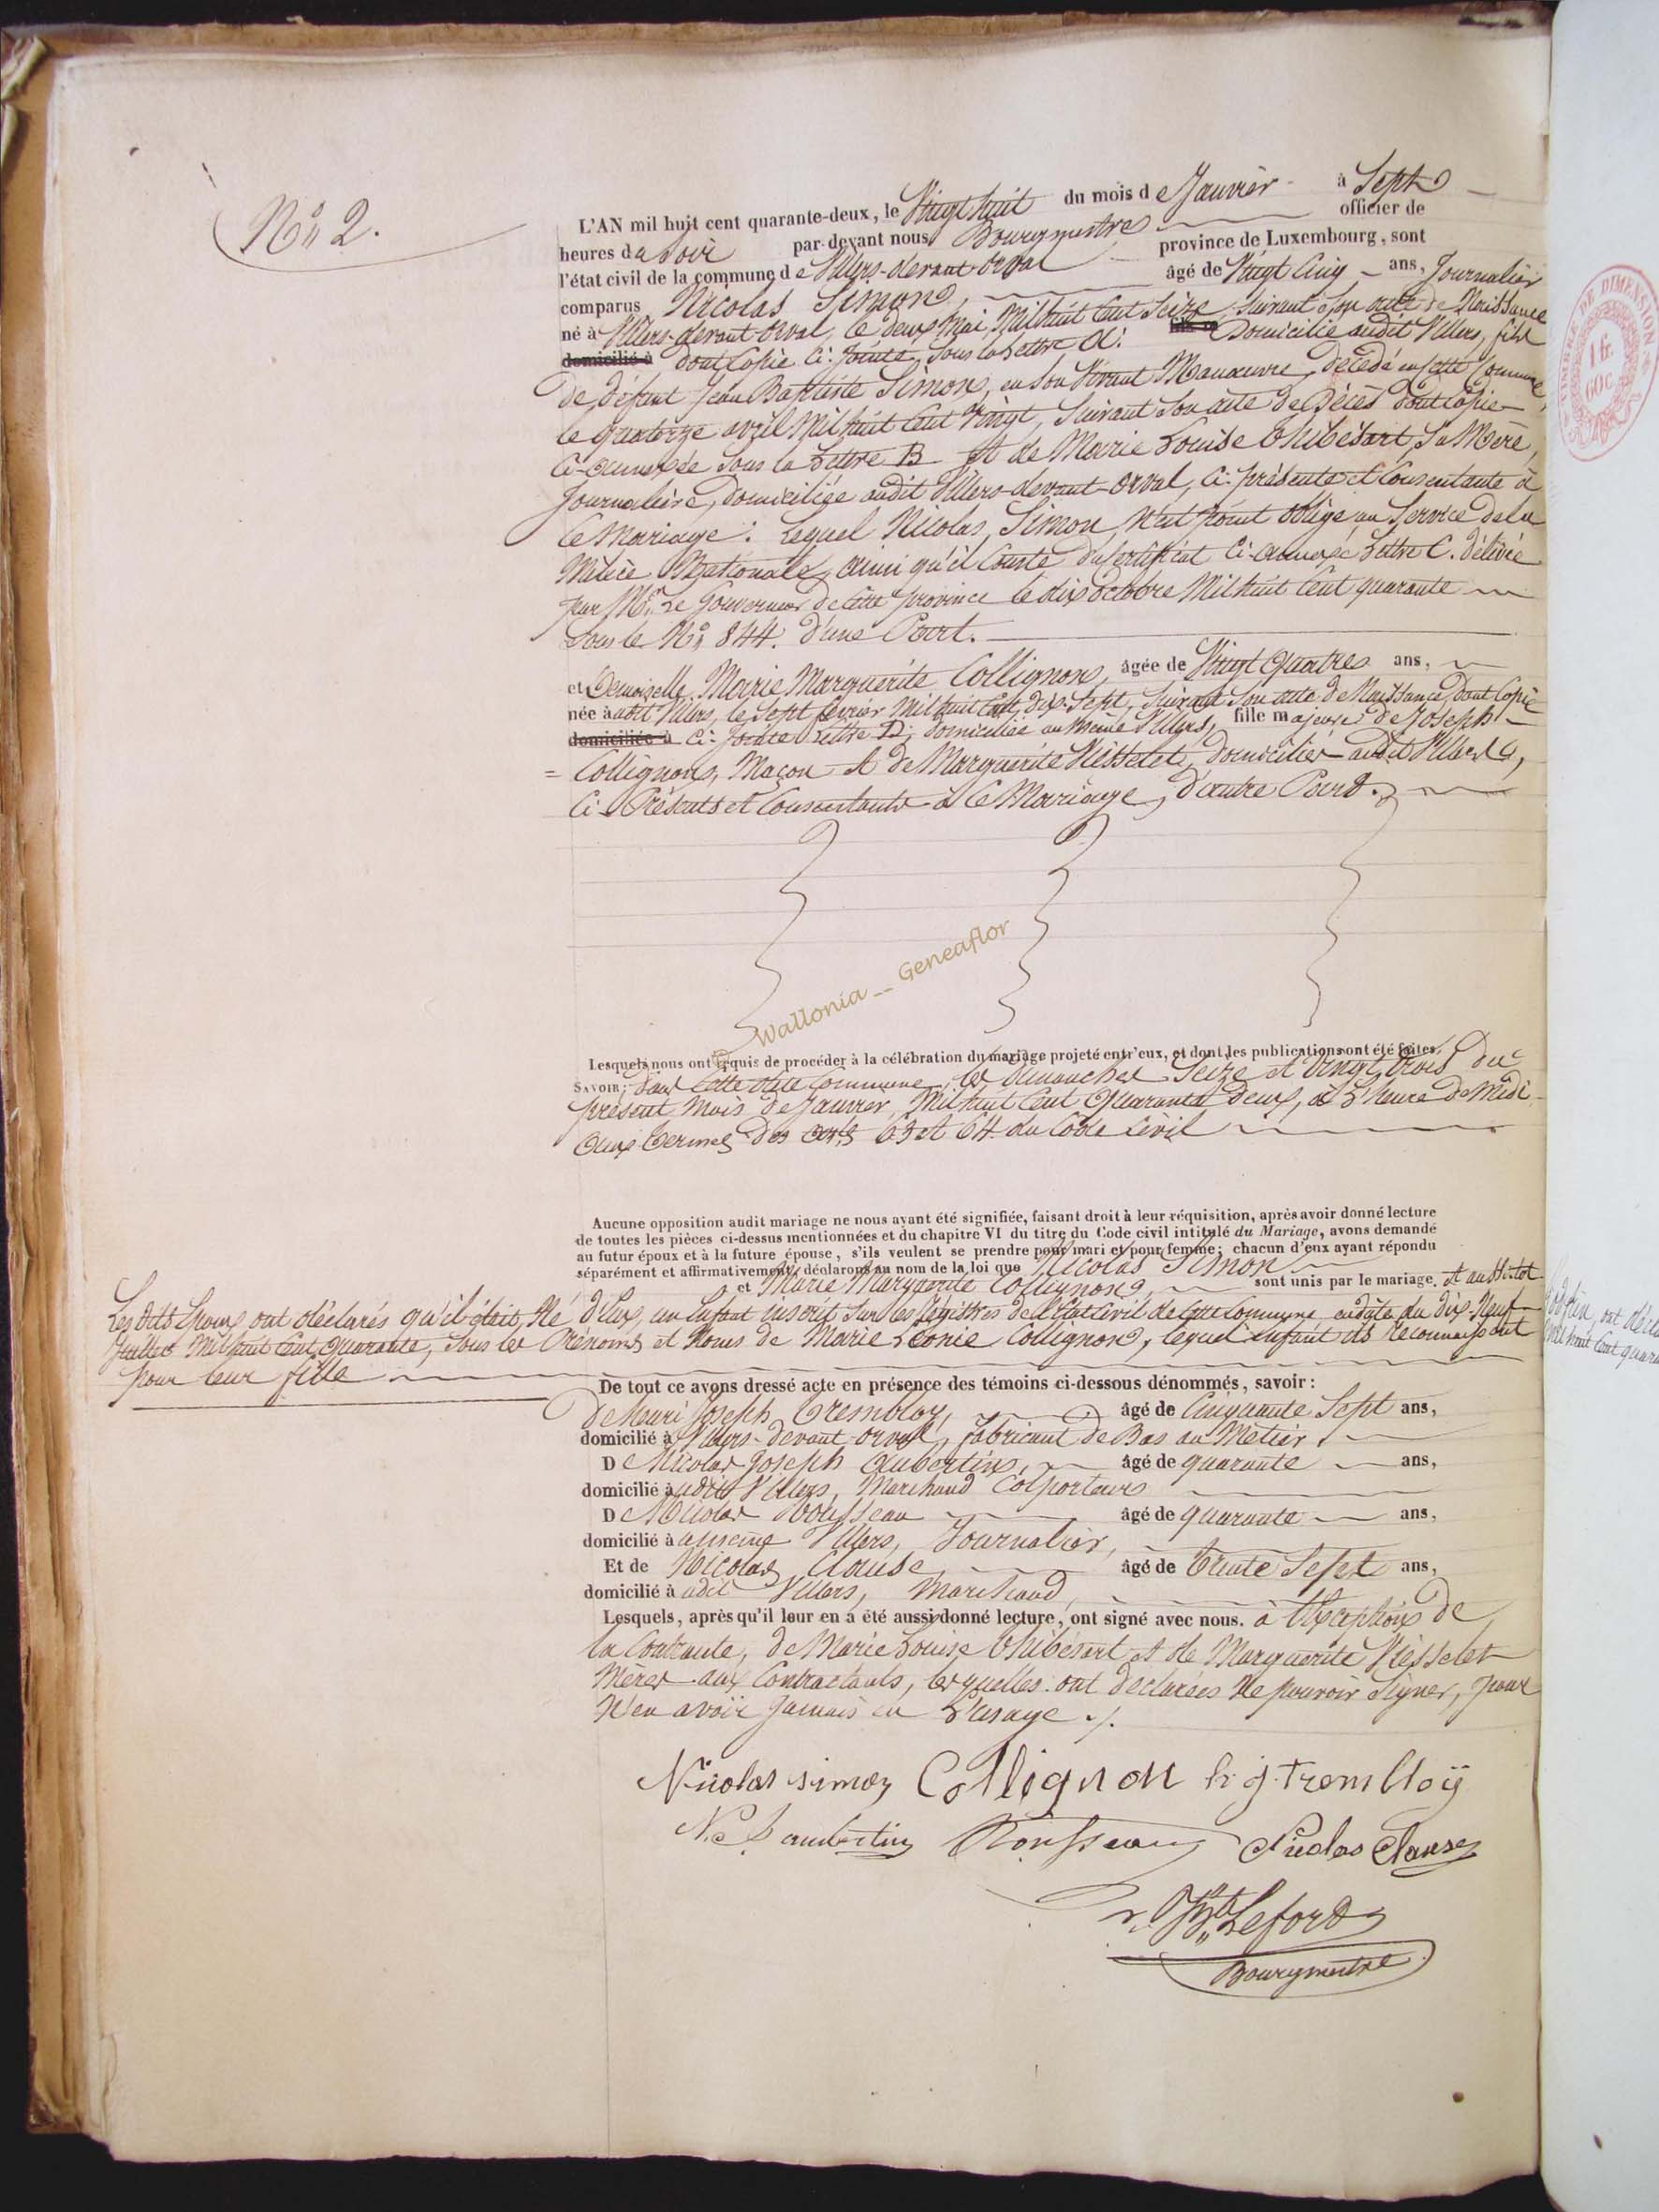 N° 2.
L'AN mil huit cent quarante-deux, le Vingt huit du mois de Janvier à Sept
heures du Soir par-devant nous Bourgmestre officier de
l'état civil de la commune de Villers-devant-Orval province de Luxembourg, sont
comparus Nicolas Simon, âgé de Vingt Cinq ans, Journalier
né à Villers-devant-Orval, le deux Mai Mil huit Cent Seize, Suivant son acte de Naissance
domicilié à dont Copie Ci-Jointe, Sous la Lettre A. Domicilié audit Villers, fils
de défunt Jean Baptiste Simon, en Son Vivant Manœuvre, décédé en cette Commune,
le quatorze avril Mil huit Cent Vingt, Suivant Son acte de Décès dont Copie
Ci-annexée Sous la Lettre B. Et de Marie Louise Thibésart, Sa Mère,
Journalière, domiciliée audit Villers-devant-Orval, Ci-présente et Consentante à
Ce Mariage. Lequel Nicolas, Simon, n'est point obligé au Service de la
Milice Nationale, ainsi qu'il Conste du Certificat Ci-annexée Lettre C. délivré
par Mr. Le Gouverneur de Cette province le dix octobre Mil huit Cent quarante
Sous le N° 844. d'une Part.
et Demoiselle Marie Marguerite Collignon, âgée de Vingt quatre ans,
née audit Villers, le Sept février Mil huit Cent dix-Sept, Suivant Son acte de Naissance dont Copie
domiciliée à Ci-Jointe Lettre D, domiciliée au même Villers, fille majeure de Joseph
= Collignon, Maçon Et de Marguerite Nésselet, domiciliés audit Villers,
Ci-Présents et Consentants à Ce Mariage, d'autre Part.
Wallonia __ Geneaflor
Lesquels nous ont requis de procéder à la célébration du mariage projeté entr'eux, et dont les publications ont été faites,
SAVOIR: dans Cette dite Commune, les dimanches Seize et Vingt trois du
présent Mois de Janvier, Mil huit Cent Quarante deux, à L'heure de Midi
Aux termes des arts 63 et 64 du Code Civil
Aucune opposition audit mariage ne nous ayant été signifiée, faisant droit à leur réquisition, après avoir donné lecture
de toutes les pièces ci-dessus mentionnées et du chapitre VI du titre du Code civil intitulé du Mariage, avons demandé
au futur époux et à la future épouse, s'ils veulent se prendre pour mari et pour femme; chacun d'eux ayant répondu
séparément et affirmativement, déclarons au nom de la loi que Nicolas Simon
et Marie Marguerite Collignon, sont unis par le mariage. Et aussitot
Les dits Epoux ont déclarés qu'il était Né d'Eux, un Enfant inscrit Sur les Régistres de l'Etat Civil de Cette Commune, en date du dix-Neuf
Juillet Mil huit Cent Quarante, Sous les Prénoms et Noms de Marie Léonie Collignon, lequel Enfant ils Reconnaissent
Pour leur fille
De tout ce avons dressé acte en présence des témoins ci-dessous dénommés, savoir:
De Henri Joseph Trembloy, âgé de Cinquante Sept ans,
domicilié à Villers-devant-Orval, fabricant de Bas au Métier.
De Nicolas Joseph Aubertin, âgé de quarante ans,
domicilié audit Villers, Marchand Colporteur
De Nicolas Rousseau âgé de quarante ans,
domicilié à au même Villers, Journalier,
Et de Nicolas Clause âgé de trente Sept ans,
domicilié à udit Villers, Marchand,
Lesquels, après qu'il leur en a été aussi donné lecture, ont signé avec nous. à l'Exception de
la Contractante, de Marie Louise Thibésart Et de Marguerite Nésselet
Mères aux Contractants, lesquelles ont déclarées Ne pouvoir Signer, pour
N'en avoir Jamais eu L'usage ./.
Nicolas simon Collignon h. j. Trembloÿ
N. J. aubertin Rousseau Nicolas Clause
J. Bte Lefort
Bourgmestre
TIMBRE DE DIMENSION
1 fr.
60 c.